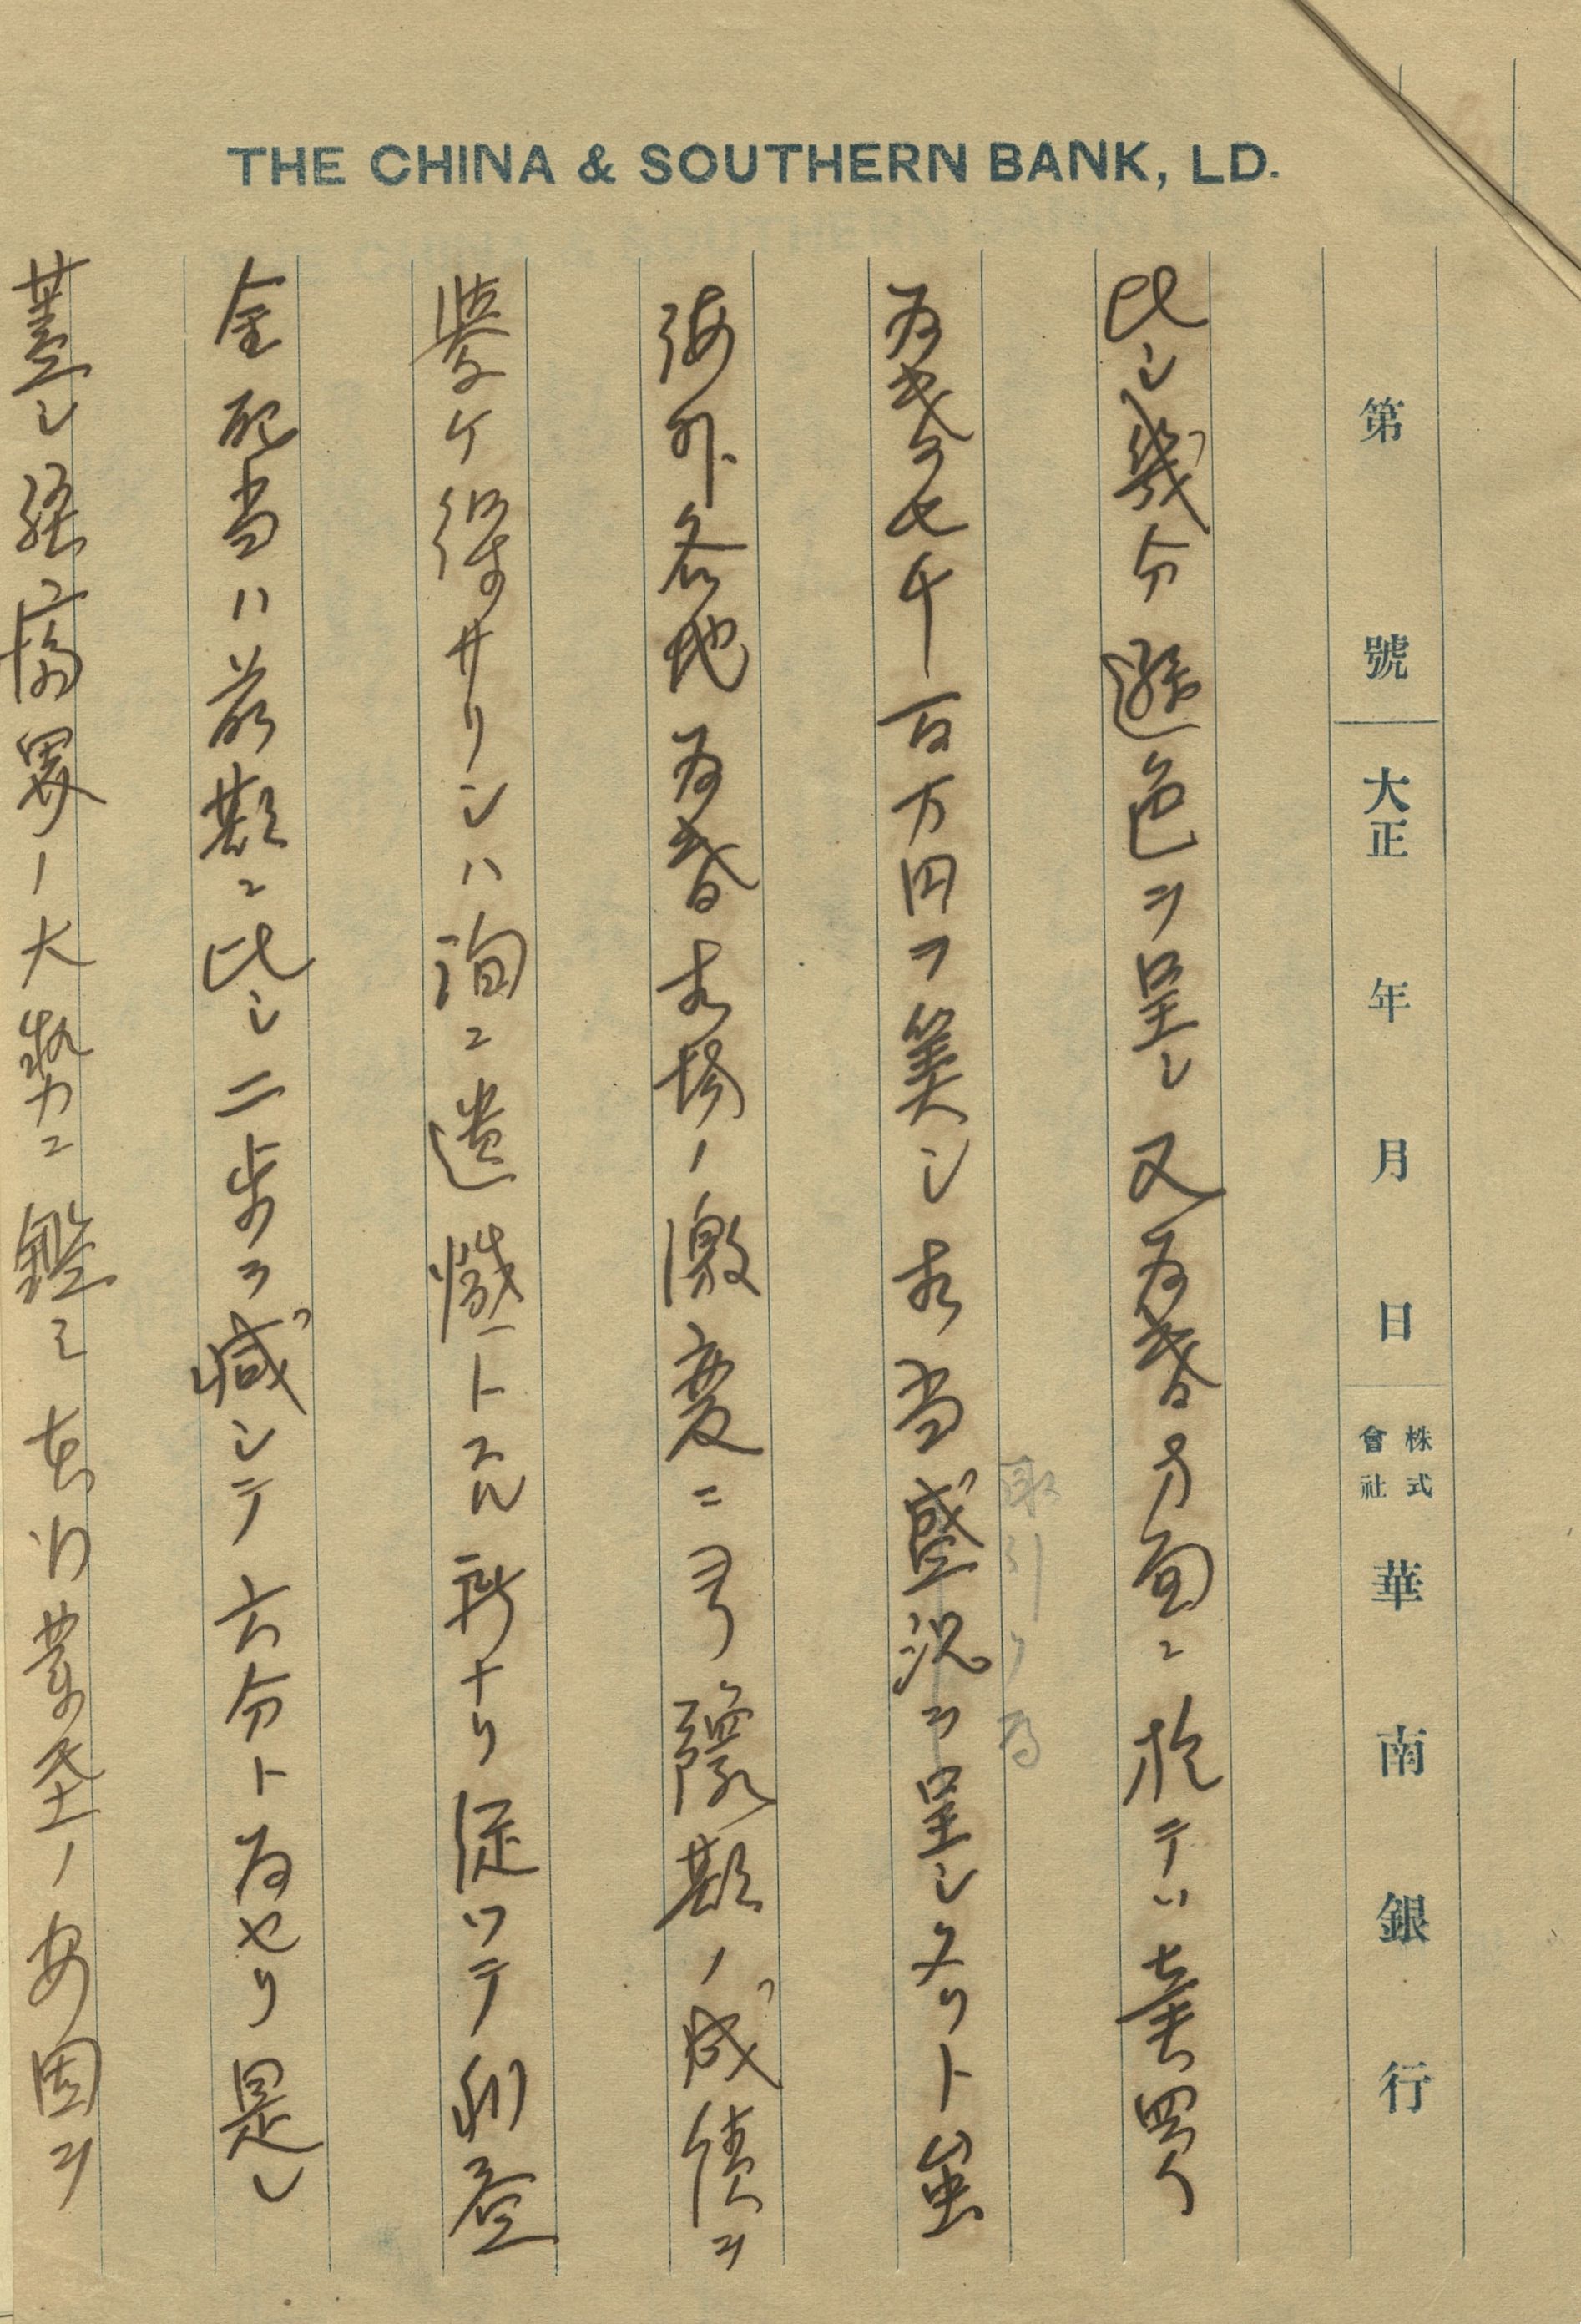 THE CHINA & SOUTHERN BANK, LD.
第 號 大正 年 月 日 株式會社 華南銀行
比シ幾分遜色ヲ呈シ又為替方面ニ於テハ売買
為替七千百万円フ算シ相当盛況ヲ呈シタリト虽
取引
海外各地為替相場ノ激変ニ予期ノ成績ヲ
挙ケ得サリシハ洵ニ遺憾トスル所ナリ従ツテ利益
金配当ハ前期ニ比シ二歩ヲ減シテ六分ト為セリ是レ
蓋シ経済界ノ大勢ニ鑑ミ銀行業基ノ安固ヲ